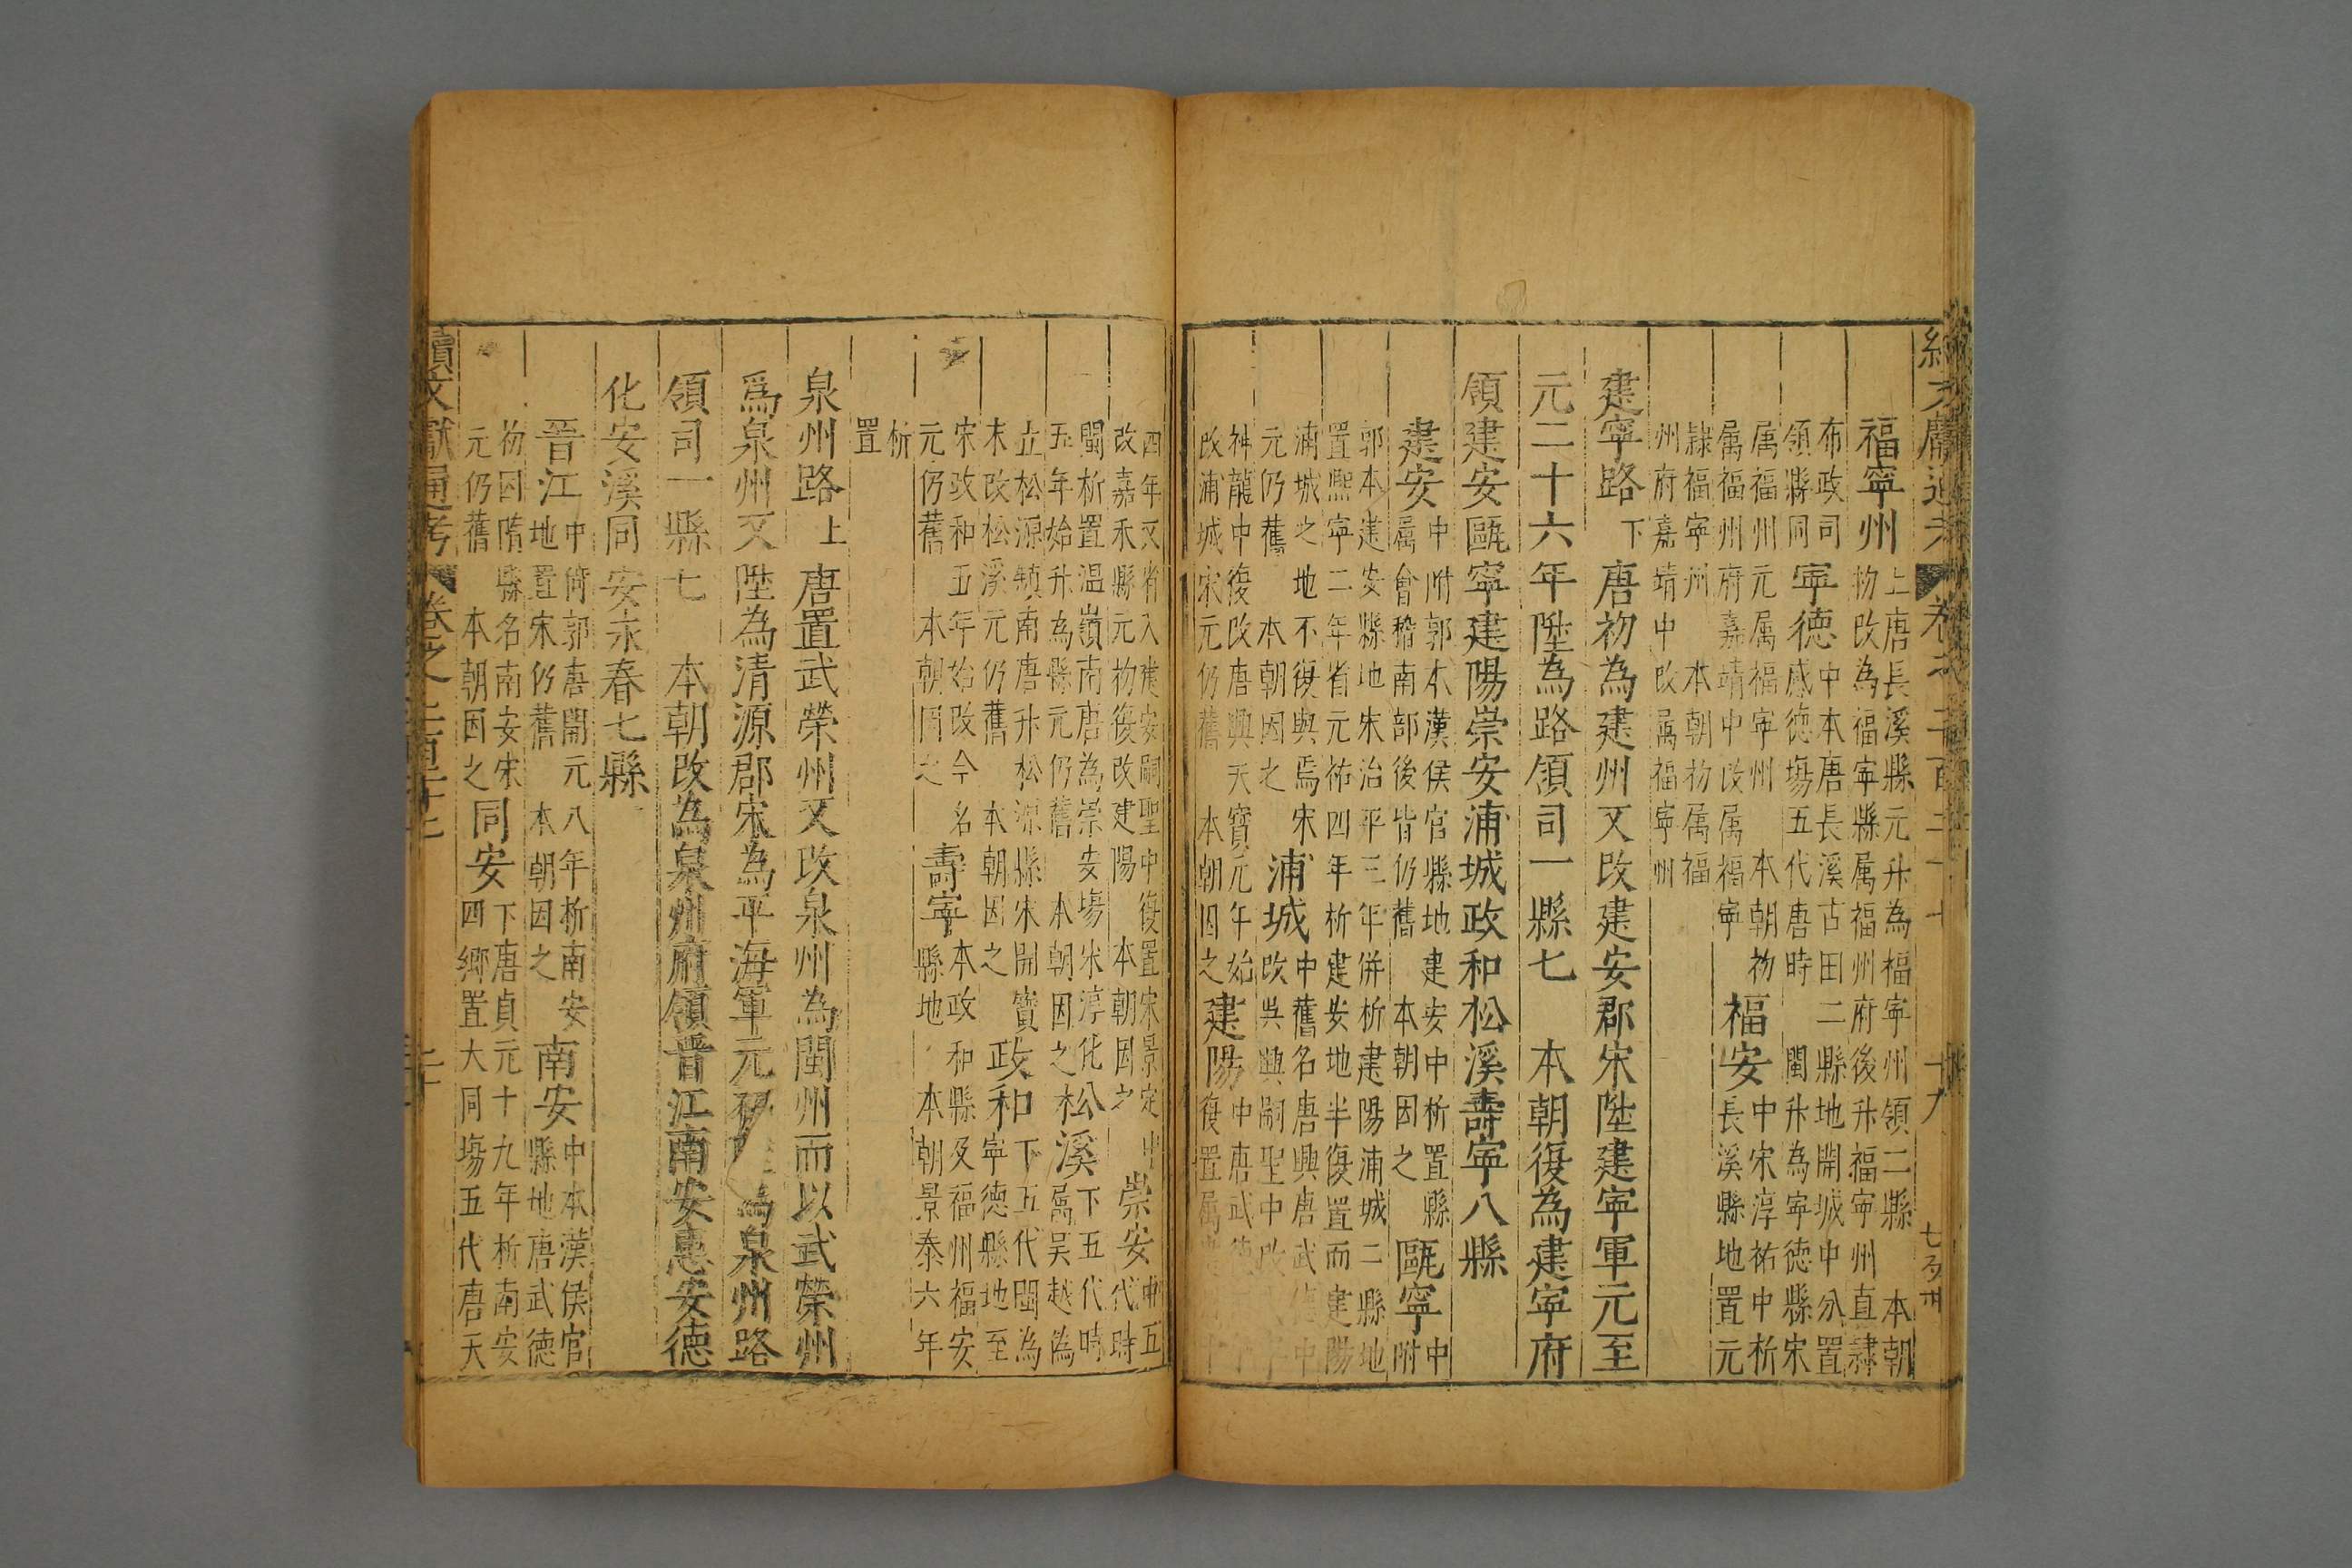 福寧州上唐長溪縣元升為福寧州領二縣 本朝
初改為福寧縣属福州府後升福寧州直隸
布政司寧德中本唐長溪古田二縣地開城中分置
領縣同感德場五代唐時 閩升為寧德縣宋
属福州元属福寧州 本朝初福安中宋淳祐中析
属福州府嘉靖中改属福寧長溪縣地置元
隸福寧州 本朝初属福
州府嘉靖中改属福寧州
建寧路下唐初為建州又改建安郡宋陞建寧軍元至
元二十六年陞為路領司一縣七 本朝復為建寧府
領建安甌寧建陽崇安浦城政和松溪壽寧八縣
建安中附郭本漢侯官縣地建安中析置縣甌寧中
属會稽南部後皆仍舊 本朝因之附
郭本建安縣地宋治平三年併析建陽浦城二縣地
置熙寧二年省元祐四年析建安地半復置而建陽
浦城之地不復與焉宋浦城中舊名唐興唐武德中
元仍舊 本朝因之改吳興嗣聖中改
神龍中復改唐興天寶元年始建陽中唐武德
改浦城宋元仍舊 本朝因之復置属
四年又省入建安嗣聖中復置宋景定中崇安中五
改嘉禾縣元初復改建陽 本朝因之代時
閩析置温嶺南唐為崇安場宋淳化松溪下五代時
五年始升為縣元仍舊 本朝因之属吳越偽
立松源鎮南唐升松源縣宋開寶政和下五代閩為
末改松溪元仍舊 本朝因之寧德縣地至
宋政和五年始改今名壽寧本政和縣及福州福安
元仍舊 本朝因之縣地 本朝景泰六年
析
置
泉州路上唐置武榮州又改泉州為閩州而以武榮州
為泉州又陞為清源郡宋為平海軍元 為泉州路
領司一縣七 本朝改為泉州府領晉江南安惠安德
化安溪同安永春七縣
晉江中倚郭唐開元八年析南安南安中本漢侯官
地置宋仍舊 本朝因之縣地唐武德
初因隋縣名南安宋同安下唐貞元十九年析南安
元仍舊 本朝因之四鄉置大同場五代唐天
續文獻通考 卷之二百二十七